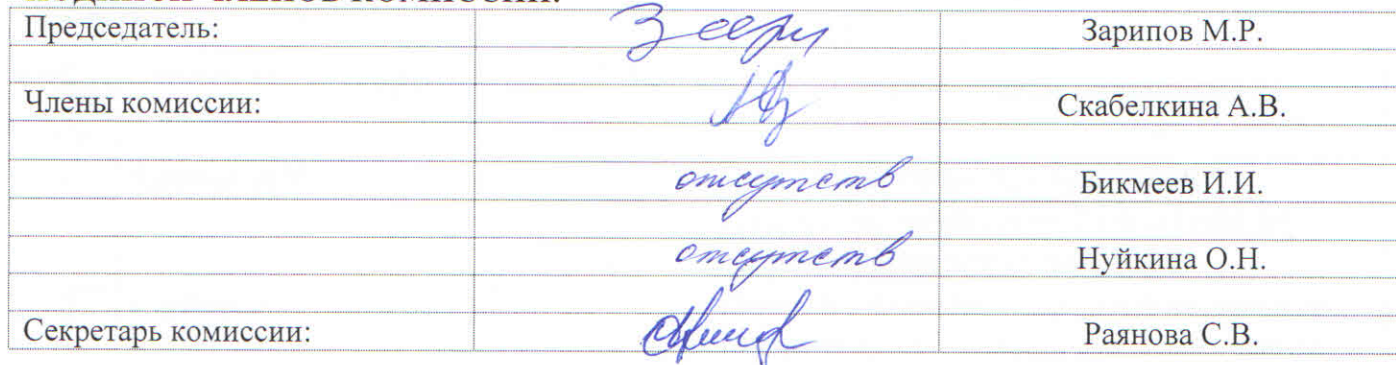 Председатель: Зарипов М.Р.
Члены комиссии: Скабелкина А.В.
отсутств Бикмеев И.И.
отсутств Нуйкина О.Н.
Секретарь комиссии: Раянова С.В.